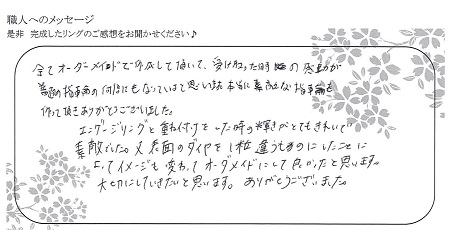 職人へのメッセージ
是非 完成したリングのご感想をお聞かせください♪
全てオーダーメイドで作成して頂いて、受け取った時の感動が
指輪の何倍にもなっていて思い、本当に素敵な指輪を
作って頂きありがとうございました。
エンゲージリングと重ね付けをした時の輝きがとてもきれいで
素敵でした。又、表面のダイヤを1粒違うものにしたことに
よってイメージも変わってオーダーメイドにして良かったと思います。
大切にしていきたいと思います。ありがとうございました。